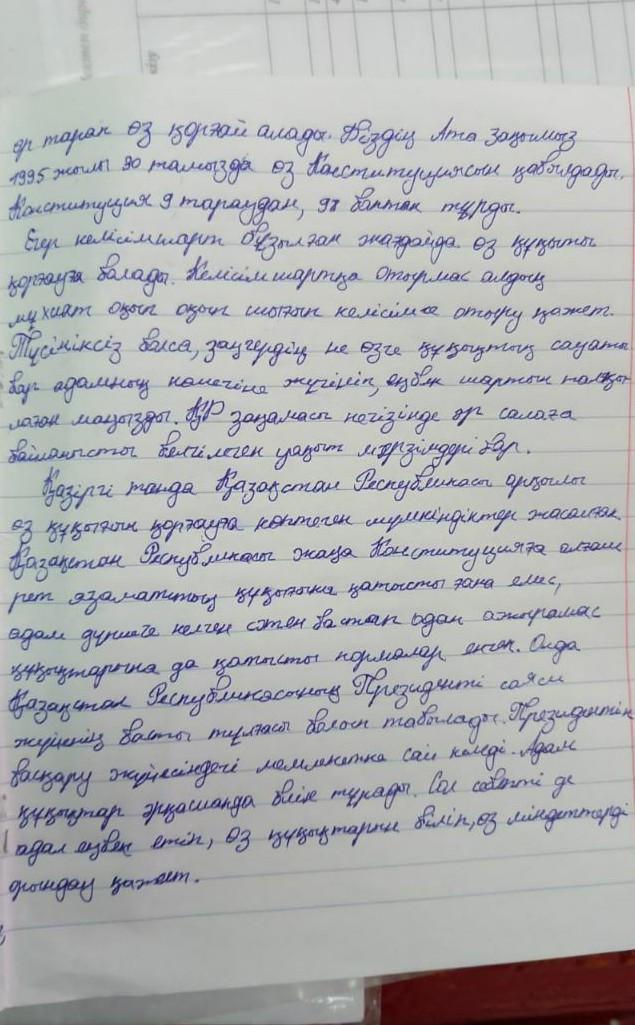 әр тарап өз қорғай алады. Біздің Ата заңымыз
1995 жылы 30 тамызда өз Конституциясын қабылдады.
Конституция 9 тараудан, 98 баптан тұрды.
Егер келісімшарт бұзылған жағдайда өз құқығы
қорғауға болады. Келісімшартқа отырмас алдың
мұхият оқып шығып келісімге отыру қажет.
Түсініксіз болса, заңгердің не өзге құқықтық сауаты
бар адамның көмегіне жүгініп, еңбек шартын талқы
лаған маңызды. ҚР заңамасы негізінде әр салаға
байланысты белгіленген уақыт мерзімдері бар.
Қазіргі таңда Қазақстан Республикасы арқылы
өз құқығын қорғауға көптеген мүмкіндіктер жасалған.
Қазақстан Республикасы жаңа Конституцияға алғаш
рет азаматтың құқығына қатысты ғана емес,
адам дүниеге келген сәттен бастап одан ажырамас
құқықтарына да қатысты нормалар енген. Онда
Қазақстан Республикасының Президенті саяси
жүйенің басты тұлғасы болып табылады. Президенттік
басқару жүйесіндегі мемлекетке сай келеді. Адам
құқықтар әрқашанда биік тұрады. Сол себепті де
адал еңбек етіп, өз құқықтарын біліп, өз міндеттерді
орындау қажет.